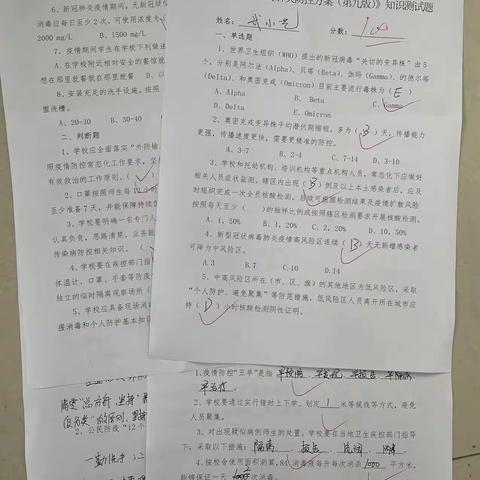 防控方案（第九版）》知识测试题
姓名： 分数：100
一、单选题
1. 世界卫生组织（WHO）提出的新冠病毒“关切的变异株”由5
个，分别是阿尔法（Alpha）、贝塔（Beta）、伽玛（Gamma）、的德尔塔
（Delta）、和奥密克戎（Omicron）目前主要流行毒株为（E）
A、Alpha B、Beta C、Gamma
D、Delta E、Omicron
2、奥密克戎变异株平均潜伏期缩短，多为（B）天，传播能力
更强，传播速度更快，需要更精准的防控。
A、3-7 B、2-4 C、7-14 D、3-10
3、学校和托幼机构、培训机构等重点机构人员，常态化下应做好
相关人员症状监测。辖区内出现（B）例及以上本土感染者后，应及
时组织完成一次全员核酸检测，后续可根据检测结果及疫情扩散风险
按照每天至少（ ）的抽样比例或按照辖区检测要求开展核酸检测。
A、1，50% B、1，20% C、2，50% D、2，10%
4、新型冠状病毒肺炎疫情高风险区连续（B）天无新增感染者
可降为中风险区。
A.3 B.7 C.10 D.14
5、中高风险区所在（市、区、旗）的其他地区为低风险区，采取
“个人防护、避免聚集”等防范措施，低风险区人员离开所在城市应
持（D）小时核酸检测阴性证明。
6、新冠肺炎疫情期间，无新冠状
消毒应每日至少2次，可使用浓度为
2000 mg/L B、1500 mg/L
7、疫情期间学生在学校下列做法
A、在学校附近相对安全的餐馆就
想在那里就餐就在那里就餐 D、
8、安装充足的洗手设施。按照
盥洗槽。
A、20-30 B、30-40
二、判断题
1、学校应全面落实“外防输
照疫情防控常态化工作要求，坚
有效救治的工作原则。（
2、口罩按照师生每 12 小时
至少准备7天，并能保障持续
3、学校要明确一名专门人
认真负责、思路清楚、业务能
传染病防控相关知识。（
4、学校要在疾控部门指
体温计、口罩、手套等防疫
独立的临时隔离观察场所（
5、学校应具备现场消毒
强消毒和个人防护基本知
1、疫情防控“五早”是指 早预防 早发现 早报告 早隔离
早治疗。
2、学校要通过实行错时上下学、划定 1 米等候线等方式，避免
人员聚集。
3、对出现疑似病例师生的处置，学校要在当地卫生疾控部门指导
下，采取以下措施：隔离
4、按校舍使用面积测算，84 消毒液每升每次消杀1000 平方米，
能够保证一天
2、公民防疫“12个